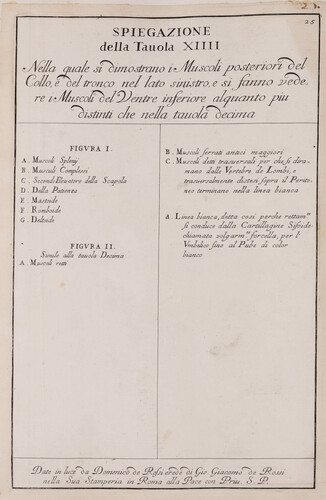 25
SPIEGAZIONE
della Tauola XIIII
Nella quale si dimostrano i Muscoli posteriori del
Collo, e del tronco nel lato sinistro, e si fanno vede,
re i Muscoli del Ventre inferiore alquanto piu
distinti che nella tauola decima
FIGVRA I.
A. Muscoli Splenij
B. Muscoli Complessi
C. Second Eleuatore della Scapola
D. Della Patienza
E. Mastoide
F. Romboide
G. Deltoide
FIGVRA II.
Simile alla tauola Decima
A Muscoli retti
B. Muscoli serrati antici maggiori
C. Muscoli detti trasuersali per che si dira,
mano dalle Vertebre de Lombi, e
trasuersalmente distesi sopra il Perito,
neo terminano nella linea bianca
A. Linea bianca, detta cosi perche rettam.te
si conduce dalla Cartillagine Sifoide
chiamata volgarm.te forcella, per l'
Vmbelico sino al Pube di color
bianco
Date in luce da Domenico de Rossi erede di Gio. Giacomo de Rossi
nella Sua Stamperia in Roma alla Pace con Priu. S. P.